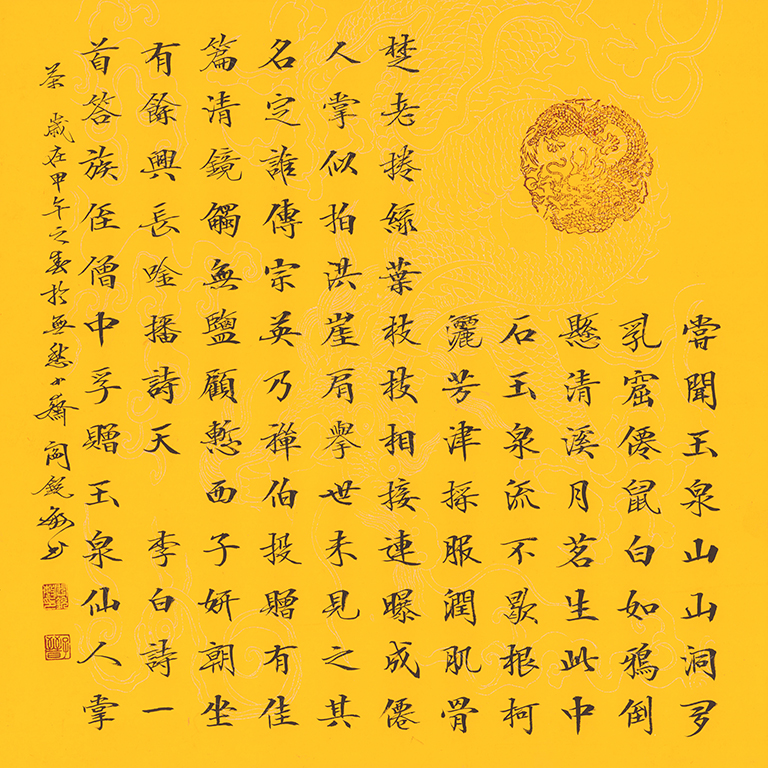 嘗聞玉泉山山洞多
乳窟僊鼠白如鴉倒
懸清溪月茗生此中
石玉泉流不歇根柯
灑芳津採服潤肌骨
楚老捲綠葉枝枝相接連曝成僊
人掌似拍洪崖肩舉世未見之其
名定誰傳宗英乃禪伯投贈有佳
篇清鏡觸無鹽顧慙西子妍朝坐
有餘興長唫播詩天 李白詩一
首答族侄僧中孚贈玉泉仙人掌
茶 歲在甲午之春於無愁小齋 閻銳敏書